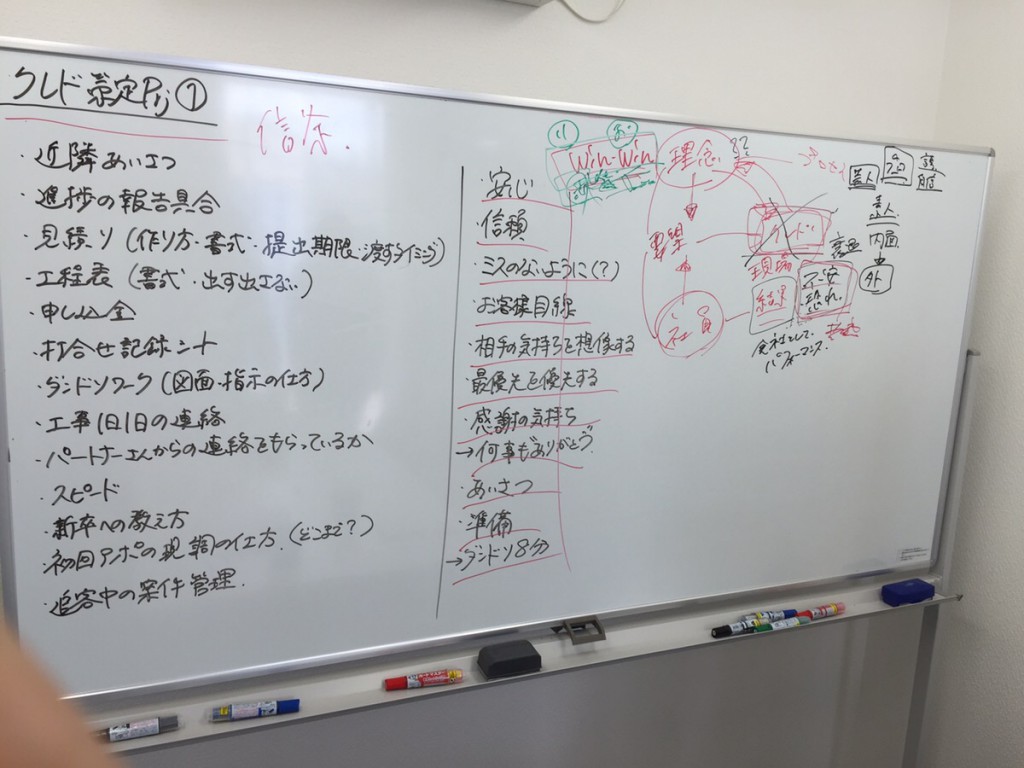 クレド策定Prj①
信京.
・近隣あいさつ
・進捗の報告具合
・見積り(作り方・書式・提出期限・渡すタイミング)
・工程表(書式・出す出さない)
・申し込金
・打合せ記録シート
・ダンドリワーク(図面・指示の仕方)
・工事1日1日の連絡
・パートナーさんからの連絡をもらっているか
・スピード
・新卒への教え方
・初回アポの現調の仕方.(どこまで?)
・追客中の案件管理.
・安心
・信頼
・ミスのないように(?)
・お客様目線
・相手の気持ちを想像する
・最優先を優先する
・感謝の気持ち
→何事もありがとう.
・あいさつ
・準備
→ダンドリ8分
Win-Win
理念
??
現場
結果
不安
恐れ
社員
会社として
パフォーマンス
素人
内面
外